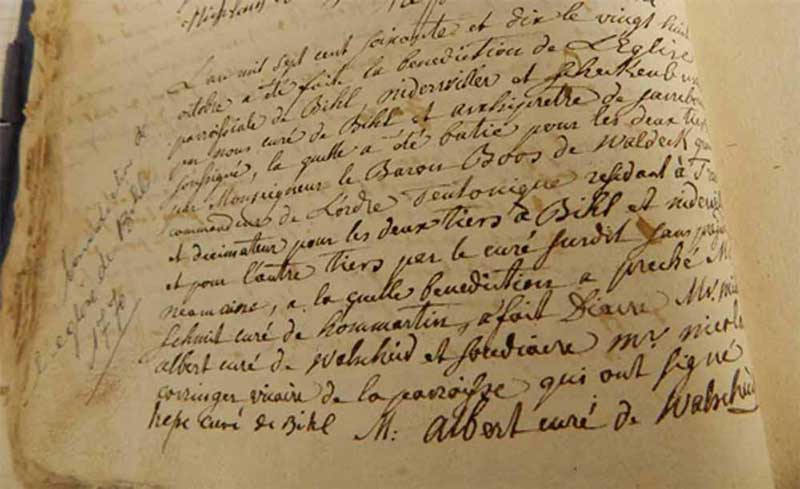 L'an mil sept cent soixante et dix le vingt huit
octobre a été fait la benediction de L'Eglise
parroissiale de Bihl niderviller et
par nous curé de Bihl et archipretre de
soussigné, la quelle a été batie pour les deux tiers
par Monseigneur le Baron Boos de Waldeck
commandeur de L'ordre Teutonique residant à
et decimateur pour les deux tiers à Bihl et
et pour l'autre tiers par le curé surdit sans
neamoins, a la quelle benediction a preché M
schmit curé de hommartin, a fait Diacre Mr.
albert curé de Walscheid et soudiacre mr
vicaire de la paroisse qui ont signé
hepe curé de Bihl M: albert curé de Walscheid
benediction de
L'eglise de Bihl
1770